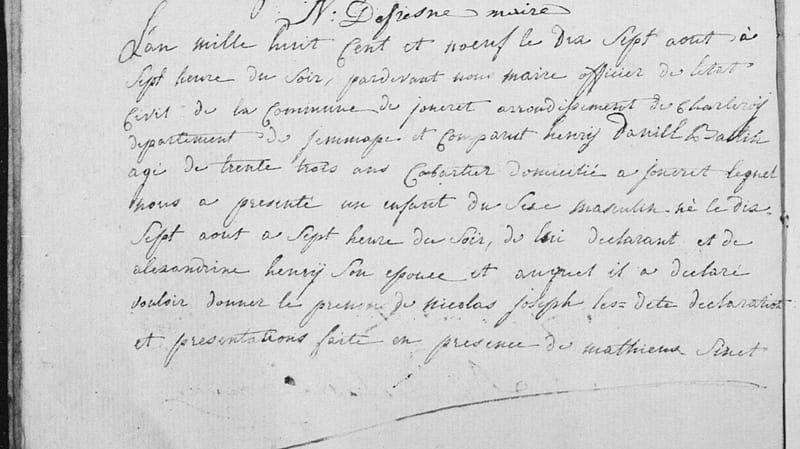 N: Defresne maire
L'an mille huit Cent et noeuf le dix Sept aout à
Sept heure du Soir, pardevant nous maire officier de letat
Civil de la Commune de joncret arrondissement de Charleroy
departement de jemmape et Comparut henry Daniel
agé de trente trois ans Cabartier domicilié a joncret lequel
nous a presenté un enfant du Sexe masculin né le dix=
Sept aout a Sept heure du Soir, de lui declarant et de
alexandrine henrÿ Son epouce et auquel il a declaré
vouloir donner le prenom de nicolas joseph les=dets declaration
et presentations faite en presence de mathieux Sinet